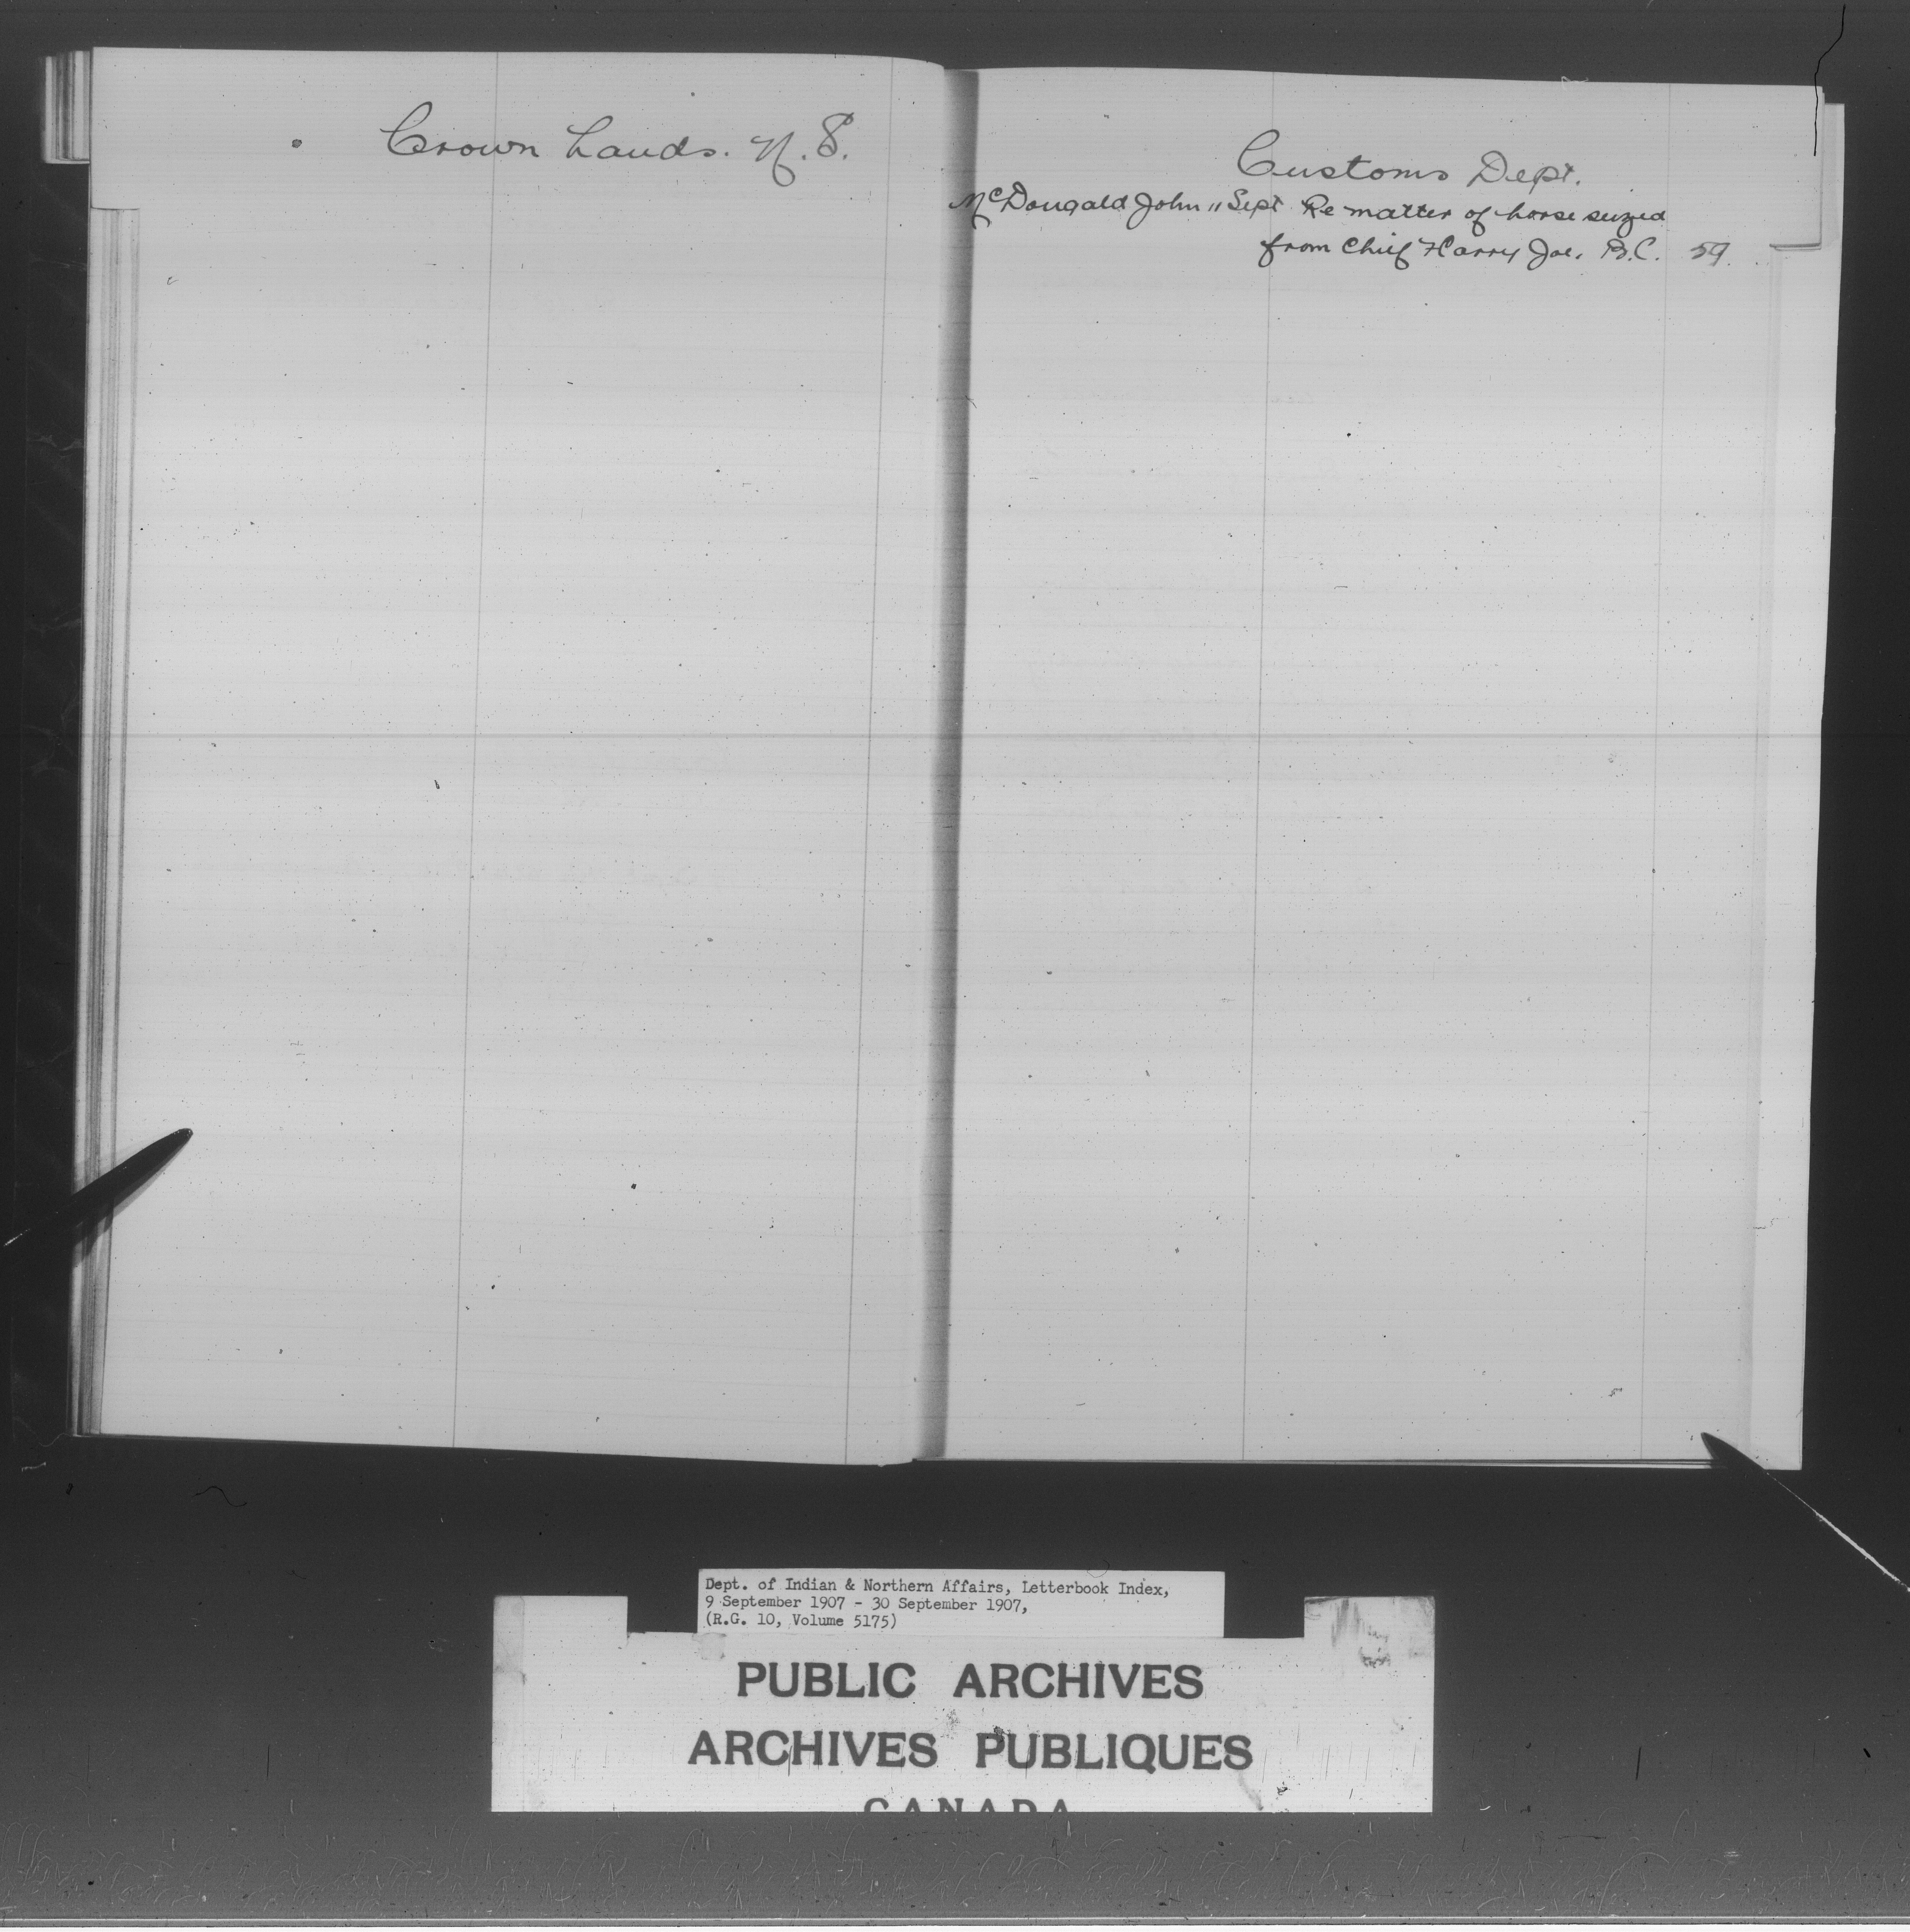 Crown Lands. N.S.
Customs Dept.
McDougald John 11 Sept Re matter of horse seized
from Chief Harry Joe, B.C. 59
Dept. of Indian & Northern Affairs, Letterbook Index,
9 September 1907 - 30 September 1907,
(R.G. 10, Volume 5175)
PUBLIC ARCHIVES
ARCHIVES PUBLIQUES
CANADA